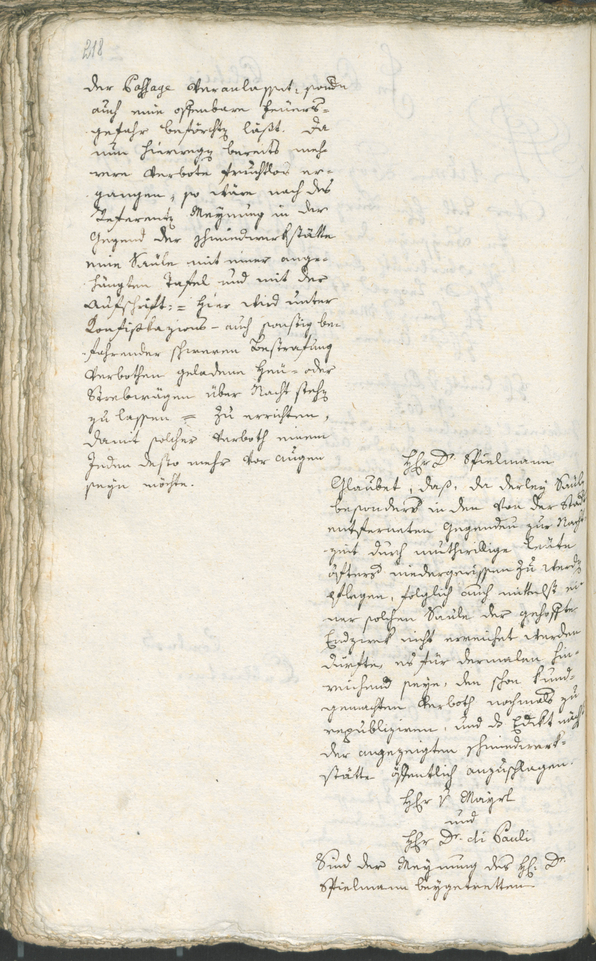 218
der Passage veranlasset, sondern
auch eine offenbare Feuers-
gefahr beförchten läßt. Da
nun hierwegen bereits meh-
rere Verbote fruchtlos er-
gangen, so wäre nach des
Referenten Meynung in der
Gegend der Schmidwerkstätte
eine Säule mit einer ange-
hängten Tafel und mit der
Aufschrift: = Hier wird unter
Konfiskazions- auch sonstig be-
fahrender schweren Bestrafung
verbothen geladene Heu- oder
Strebwägen über Nacht stehen
zu lassen = zu errichten,
damit solches Verboth einem
Jeden desto mehr vor Augen
seyn möchte.
Hhr Dr. Spielmann
Glaubet, daß, da derley Säulen
besonders in den von der Stadt
entferneten Gegenden zur Nacht-
zeit durch muthwillige Leute
öfters niedergerissen zu werden
pflegen, folglich auch mittelst ei-
ner solchen Säule der gehoffte
Endzwek nicht erreichet werden
dürfte, es für dermalen hin-
reichend seye, den schon kund-
gemachten Verboth nochmals zu
republizieren, und das Edikt nächst
der angezeigten Schmidwerk-
stätte öffentlich anzuschlagen.
Hhr v. Mayrl
und
Hhr Dr. di Pauli
Sind der Meynung des Hh. Dr.
Spielmann beygetretten.